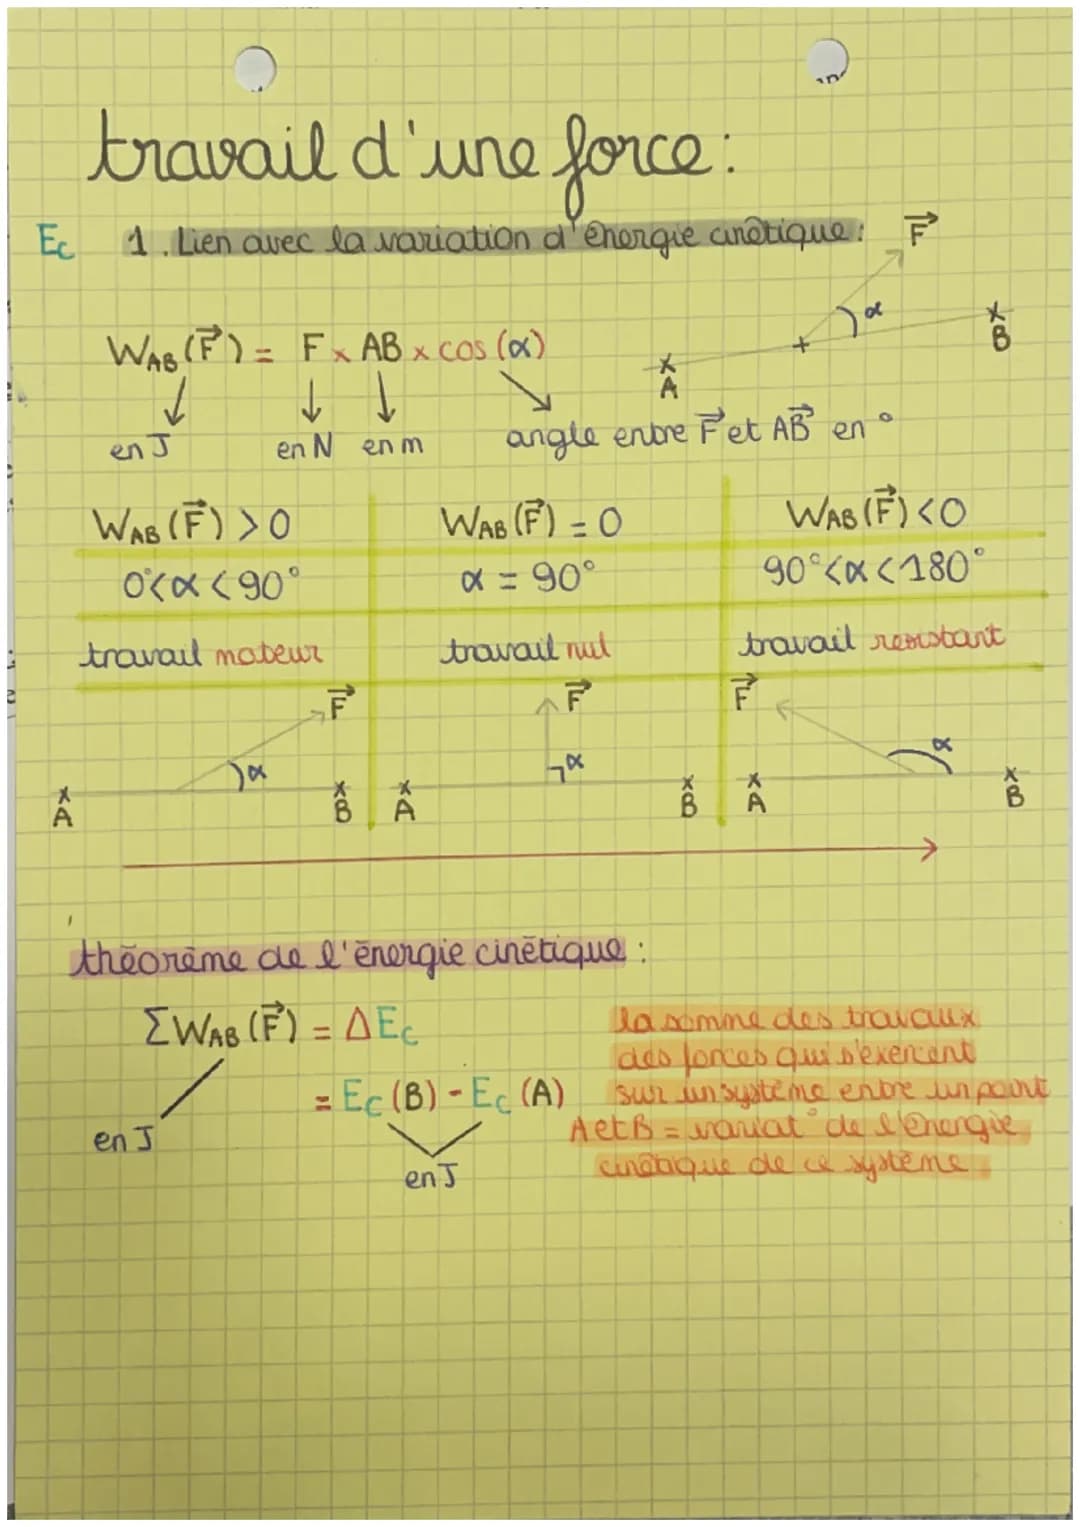 travail d'une force :
Ec 1. Lien avec la variation d'énergie cinétique :
F⃗
α
A B
W_AB (F⃗) = F × AB × cos (α)
en J en N en m angle entre F⃗ et AB⃗ en °
W_AB (F⃗) > 0 W_AB (F⃗) = 0 W_AB (F⃗) < 0
0°<α<90° α = 90° 90°<α<180°
travail moteur travail nul travail resistant
F⃗ F⃗ F⃗
α α α
A B A B A B
théorème de l'énergie cinétique :
ΣW_AB (F⃗) = ΔEc
= Ec (B) - Ec (A)
en J
en J
la somme des travaux
des forces qui s'exercent
sur un système entre un point
A et B = variat° de l'énergie
cinétique de ce système